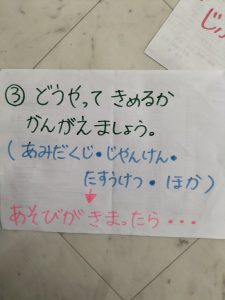 じ
③ どうやって きめるか
かんがえましょう。
(あみだくじ・じゃんけん・
たすうけつ・ほか)
↓
あそびがきまったら・・・